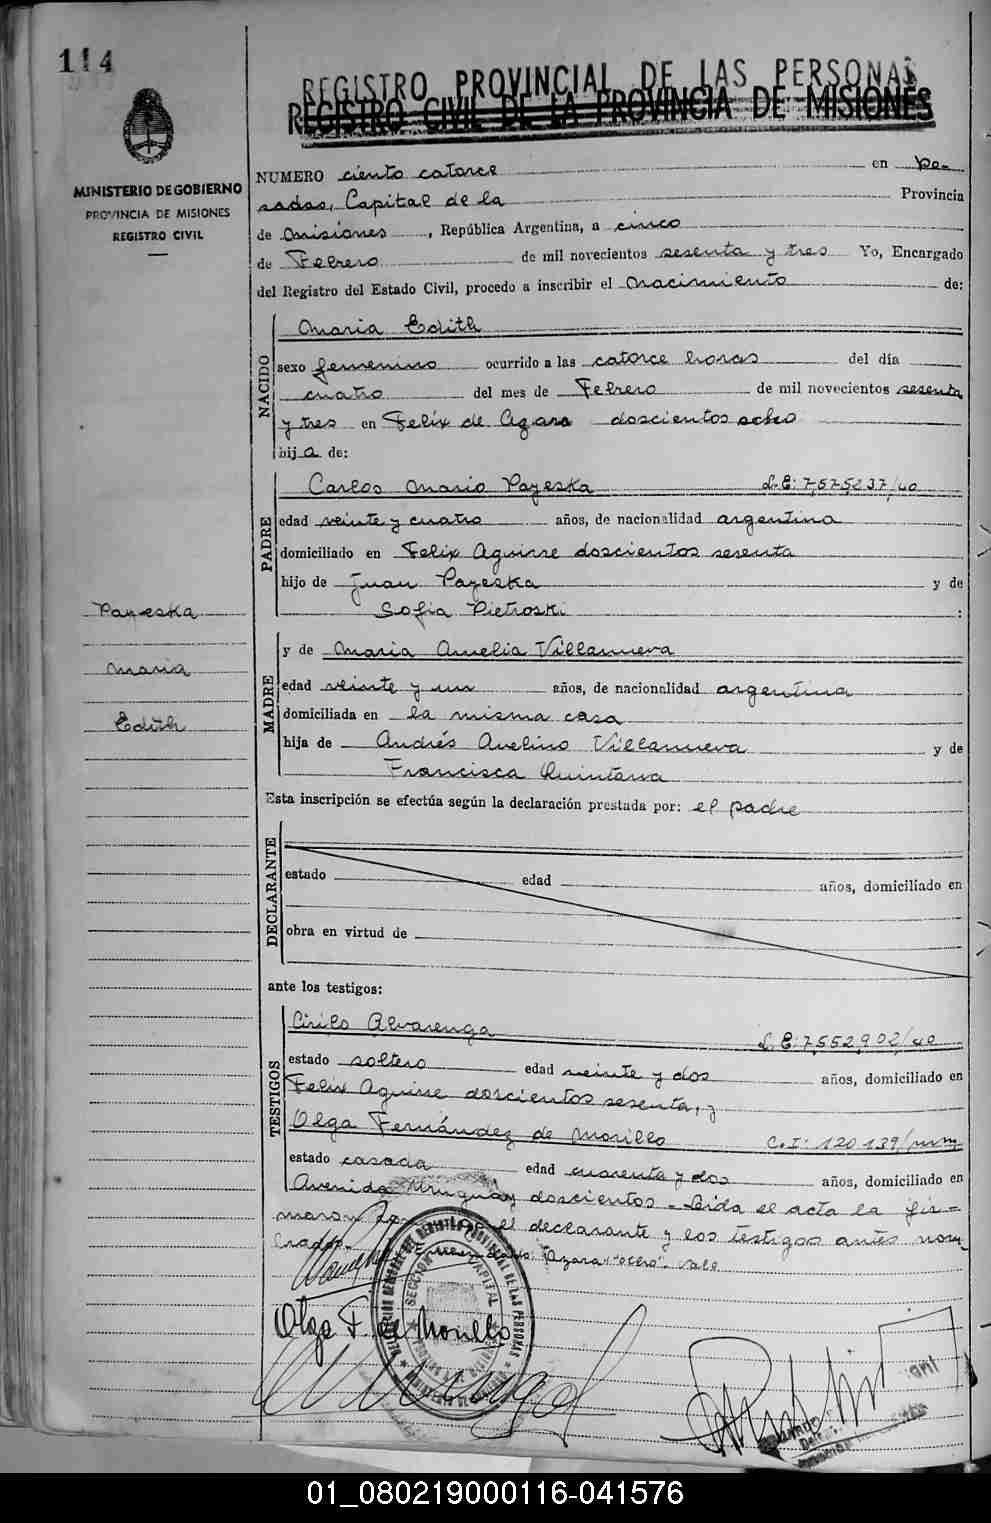 114
REGISTRO PROVINCIAL DE LAS PERSONAS
REGISTRO CIVIL DE LA PROVINCIA DE MISIONES
MINISTERIO DE GOBIERNO
PROVINCIA DE MISIONES
REGISTRO CIVIL
NUMERO ciento catorce en Po-
sadas, Capital de la Provincia
de Misiones, República Argentina, a cinco
de Febrero de mil novecientos sesenta y tres Yo, Encargado
del Registro del Estado Civil, procedo a inscribir el nacimiento de:
NACIDO
Maria Edith
sexo femenino ocurrido a las catorce horas del día
cuatro del mes de Febrero de mil novecientos sesenta
y tres en Felix de Azara doscientos ocho
hija de:
PADRE
Carlos Mario Payeska L.E: 7,575,237/40
edad veinte y cuatro años, de nacionalidad argentina
domiciliado en Felix Aguirre doscientos sesenta
hijo de Juan Payeska y de
Sofia Pietroski :
Payeska
Maria
Edith
MADRE
y de Maria Amelia Villanueva
edad veinte y un años, de nacionalidad argentina
domiciliada en la misma casa
hija de Andrés Avelino Villanueva y de
Francisca Quintana
Esta inscripción se efectúa según la declaración prestada por: el padre
DECLARANTE
estado edad años, domiciliado en
obra en virtud de
ante los testigos:
TESTIGOS
Cirilo Alvarenga L.E: 7,552,902/40
estado soltero edad veinte y dos años, domiciliado en
Felix Aguirre doscientos sesenta, y
Olga Fernández de Morillo C.I: 120139/
estado casada edad cuarenta y dos años, domiciliado en
Avenida Uruguay doscientos - Leida el acta la fir=
maron el declarante y los testigos antes nom-
brados. Azara "ocho". Vale
Olga F. de Morillo
SECCION CAPITAL
01_080219000116-041576